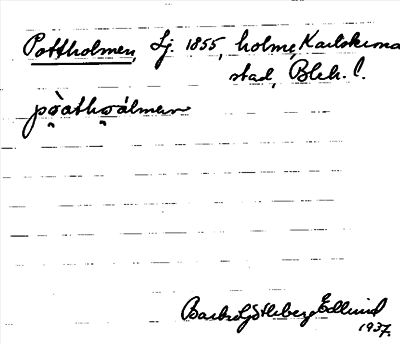 Pottholmen, Sj. 1855, holme, Karlskrona
stad, Blek. l.
po̯àtho̯álmen
Barbro Götheberg Edlund
1937.